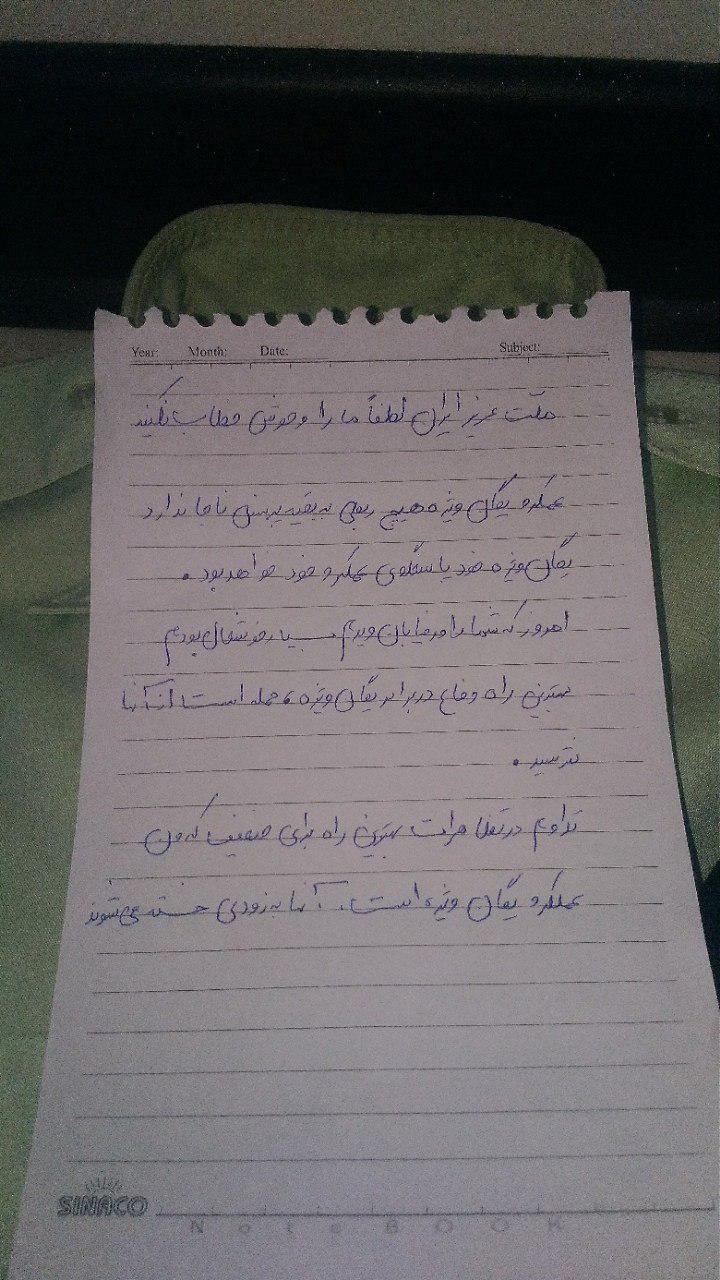 Year: Month: Date: Subject:
ملت عزیز ایران لطفاً ما را وحوش خطاب نکنید
عملکرد یگان ویژه هیچ ربطی به بقیه پرسنل ناجا ندارد
یگان ویژه خود پاسخگوی عملکرد خود خواهد بود.
امروز که شما را در خیابان دیدم بسیار خوشحال بودم
بهترین راه دفاع در برابر یگان ویژه حمله است از آنها
نترسید.
تداوم در تظاهرات بهترین راه برای ضعیف کردن
عملکرد یگان ویژه است. آنها به زودی خسته می شوند
SINACO
NoteBOOK